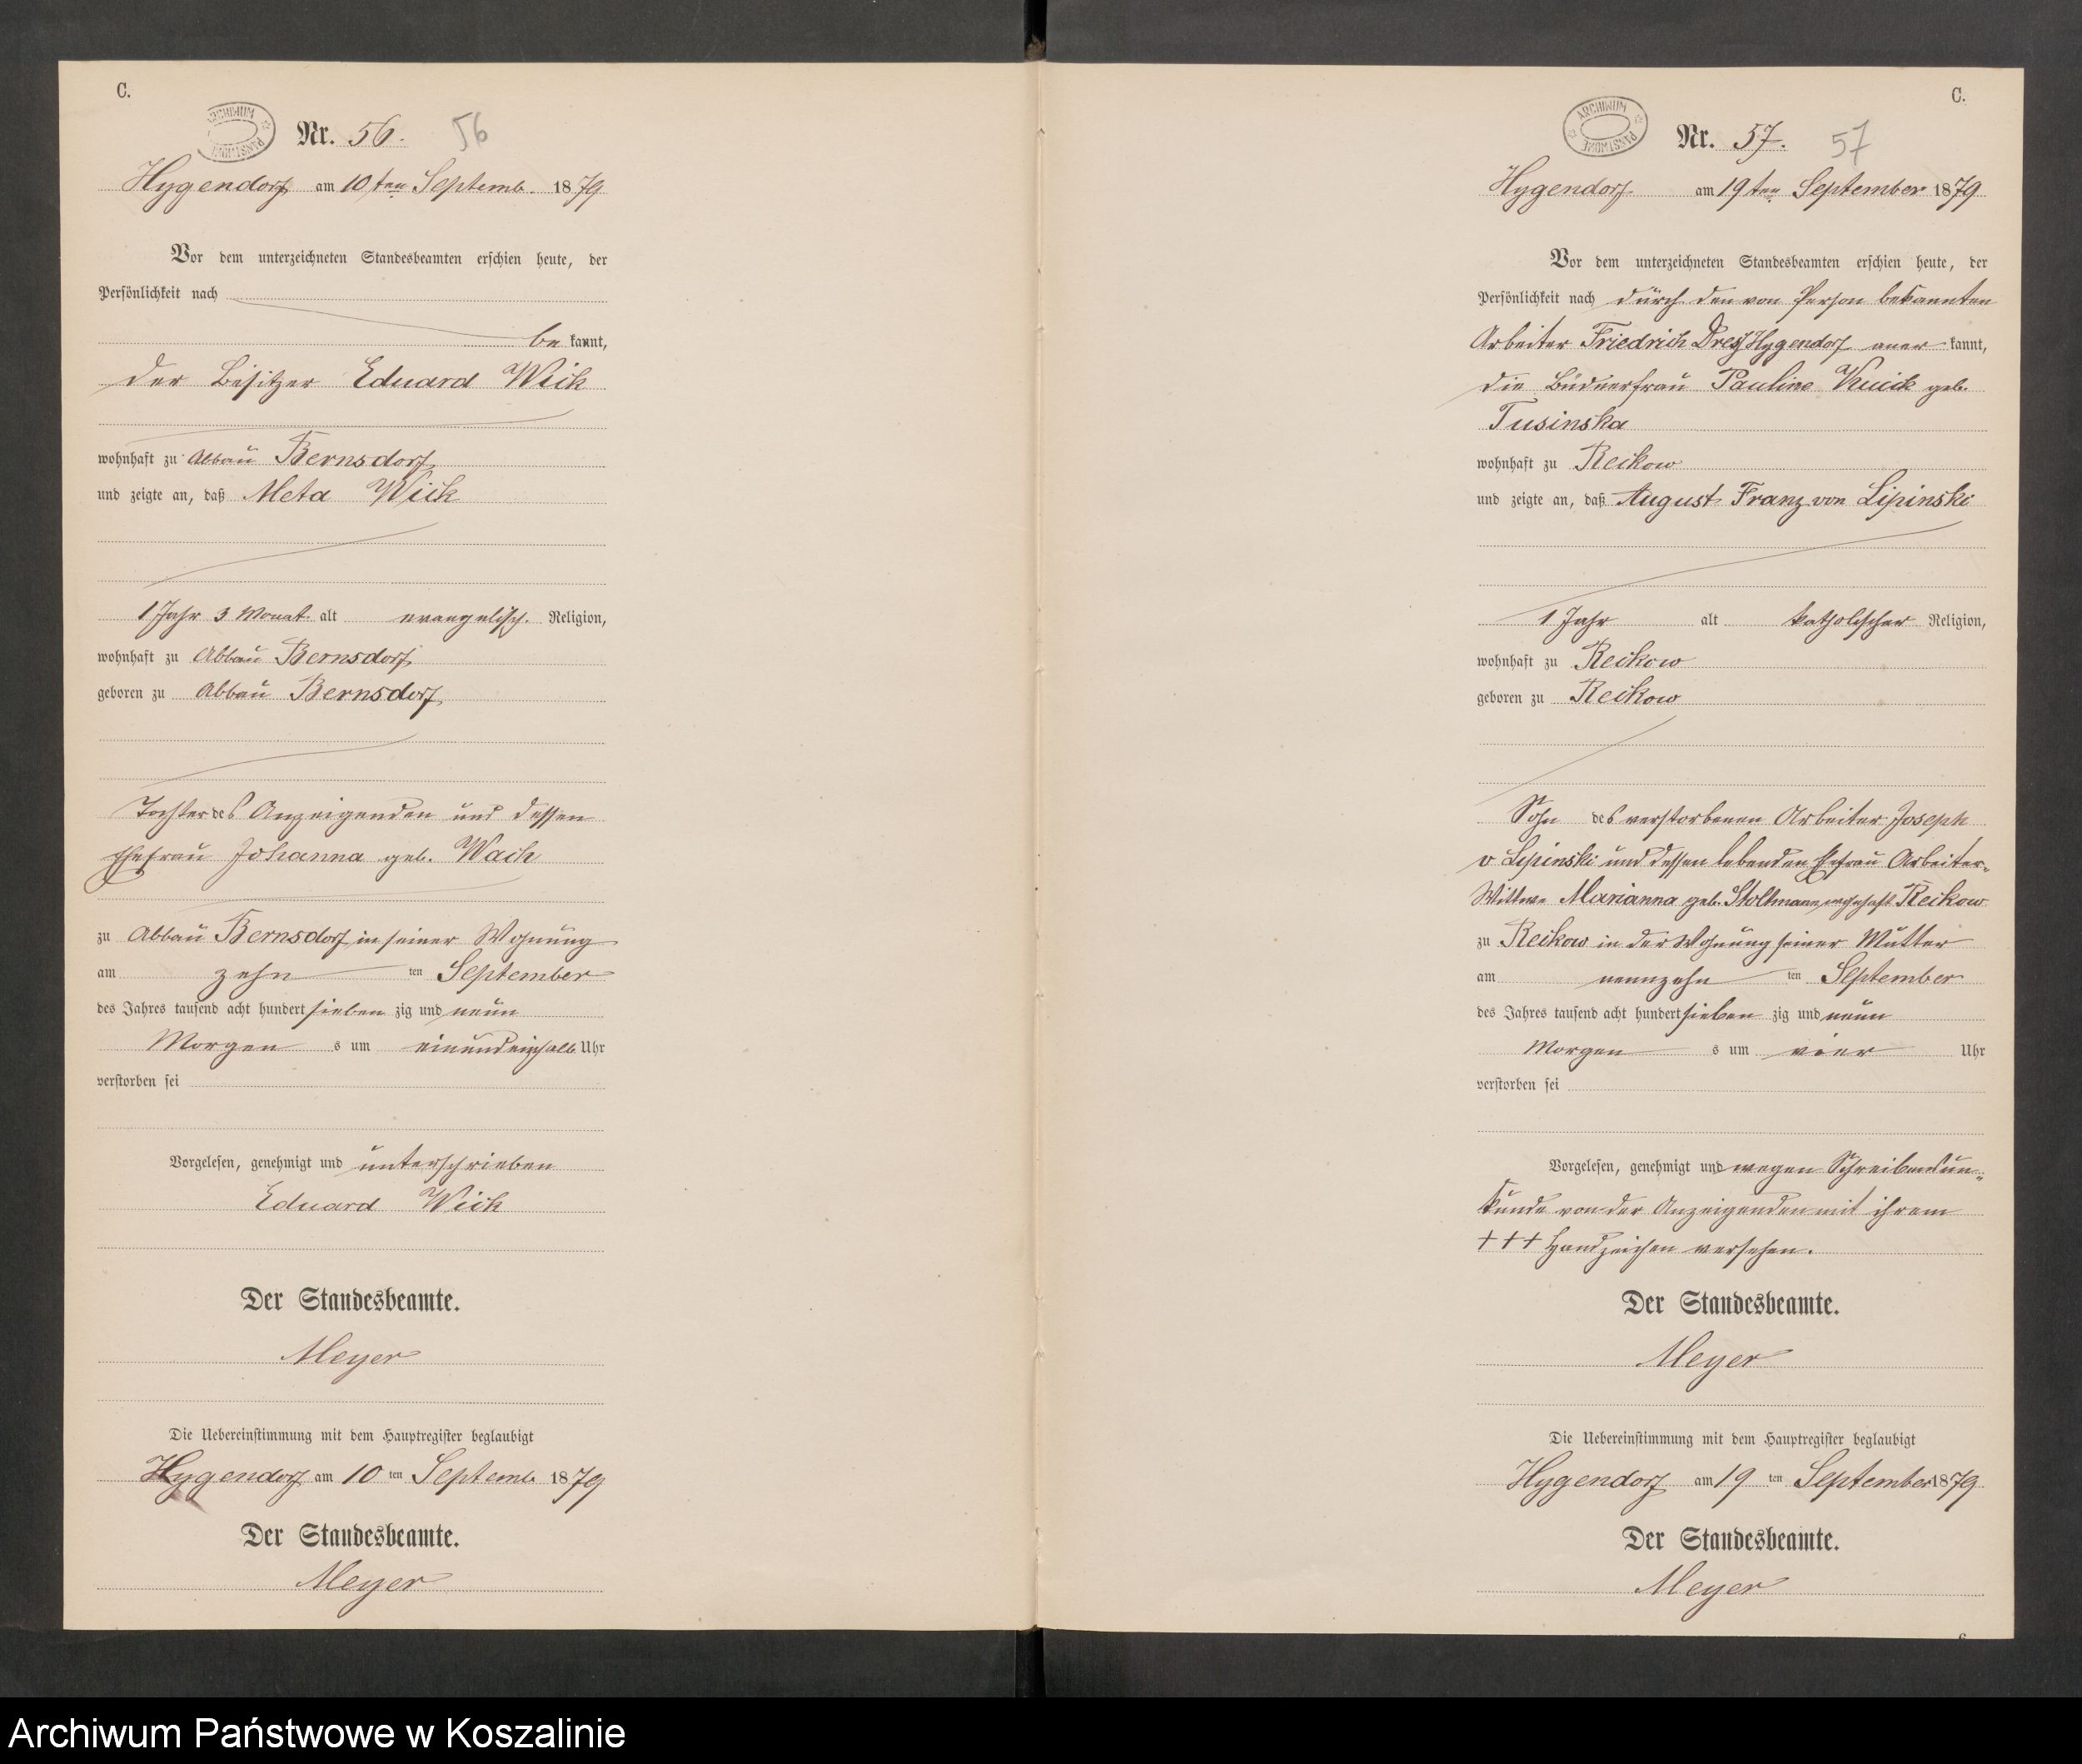 C.
ARCHIWUM PAŃSTWOWE
Nr. 56. 56
Hygendorf am 10ten Septemb. 1879
Vor dem unterzeichneten Standesbeamten erschien heute, der
Persönlichkeit nach
be kannt,
der Besitzer Eduard Wick
wohnhaft zu Abbau Bernsdorf
und zeigte an, daß Meta Wick
1 Jahr 3 Monat alt evangelisch. Religion,
wohnhaft zu Abbau Bernsdorf
geboren zu Abbau Bernsdorf
Tochter des Anzeigenden und dessen
Ehefrau Johanna geb.
zu Abbau Bernsdorf in seiner Wohnung
am zehn ten September
des Jahres tausend acht hundert sieben zig und neun
Morgen s um einundeinhalb Uhr
verstorben sei
Vorgelesen, genehmigt und unterschrieben
Eduard Wick
Der Standesbeamte.
Meyer
Die Uebereinstimmung mit dem Hauptregister beglaubigt
Hygendorf am 10 ten Septemb. 1879
Der Standesbeamte.
Meyer
C.
ARCHIWUM PAŃSTWOWE
Nr. 57. 57
Hygendorf am 19ten September 1879
Vor dem unterzeichneten Standesbeamten erschien heute, der
Persönlichkeit nach durch den von Person bekannten
Arbeiter Friedrich Hygendorf aner kannt,
die Büdnerfrau Pauline geb.
Tusinska
wohnhaft zu Reikow
und zeigte an, daß August Franz von Lipinski
1 Jahr alt katholischer Religion,
wohnhaft zu Reikow
geboren zu Reikow
Sohn des verstorbenen Arbeiter Joseph
v Lipinski und dessen lebenden Ehefrau Arbeiter-
Wittwe Marianna geb. Stoltmann wohnhaft Reikow
zu Reikow in der Wohnung seiner Mutter
am neunzehn ten September
des Jahres tausend acht hundert sieben zig und neun
Morgen s um vier Uhr
verstorben sei
Vorgelesen, genehmigt und wegen Schreibensun-
kunde von der Anzeigenden mit ihrem
+++ Handzeichen versehen.
Der Standesbeamte.
Meyer
Die Uebereinstimmung mit dem Hauptregister beglaubigt
Hygendorf am 19 ten September 1879
Der Standesbeamte.
Meyer
Archiwum Państwowe w Koszalinie